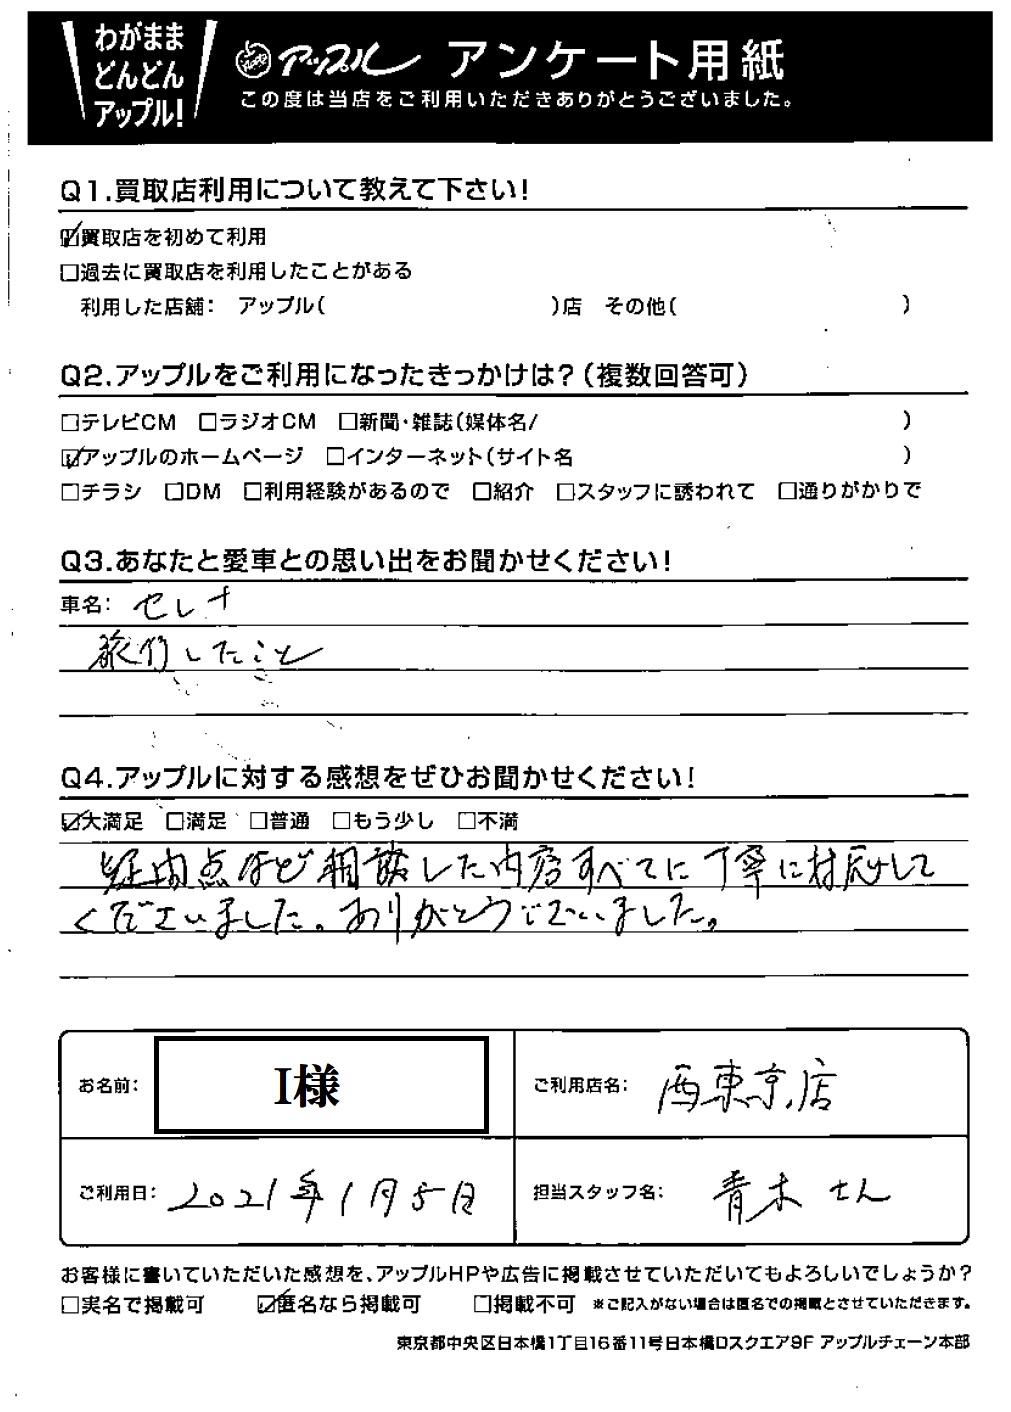 わがまま
どんどん
アップル!
アップル アンケート用紙
この度は当店をご利用いただきありがとうございました。
Q1.買取店利用について教えて下さい!
☑買取店を初めて利用
□過去に買取店を利用したことがある
利用した店舗: アップル( )店 その他( )
Q2.アップルをご利用になったきっかけは?(複数回答可)
□テレビCM □ラジオCM □新聞・雑誌(媒体名/ )
☑アップルのホームページ □インターネット(サイト名 )
□チラシ □DM □利用経験があるので □紹介 □スタッフに誘われて □通りがかりで
Q3.あなたと愛車との思い出をお聞かせください!
車名: セレナ
旅行したこと
Q4.アップルに対する感想をぜひお聞かせください!
☑大満足 □満足 □普通 □もう少し □不満
疑問点など相談した内容すべてに丁寧に対応して
くださいました。ありがとうございました。
お名前: I様
ご利用店名: 西東京店
ご利用日: 2021年1月5日
担当スタッフ名: 青木さん
お客様に書いていただいた感想を、アップルHPや広告に掲載させていただいてもよろしいでしょうか?
□実名で掲載可 ☑匿名なら掲載可 □掲載不可 ※ご記入がない場合は匿名での掲載とさせていただきます。
東京都中央区日本橋1丁目16番11号日本橋Dスクエア9F アップルチェーン本部